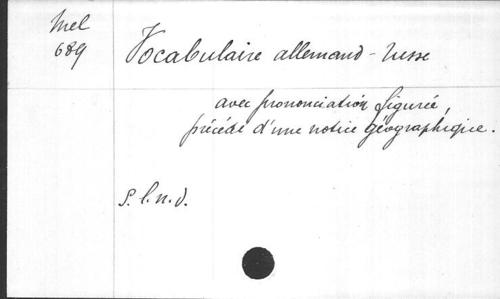 Mel
689
Vocabulaire allemand-russe
avec prononciation figurée,
précédé d'une notice géographique.
S. l. n. d.